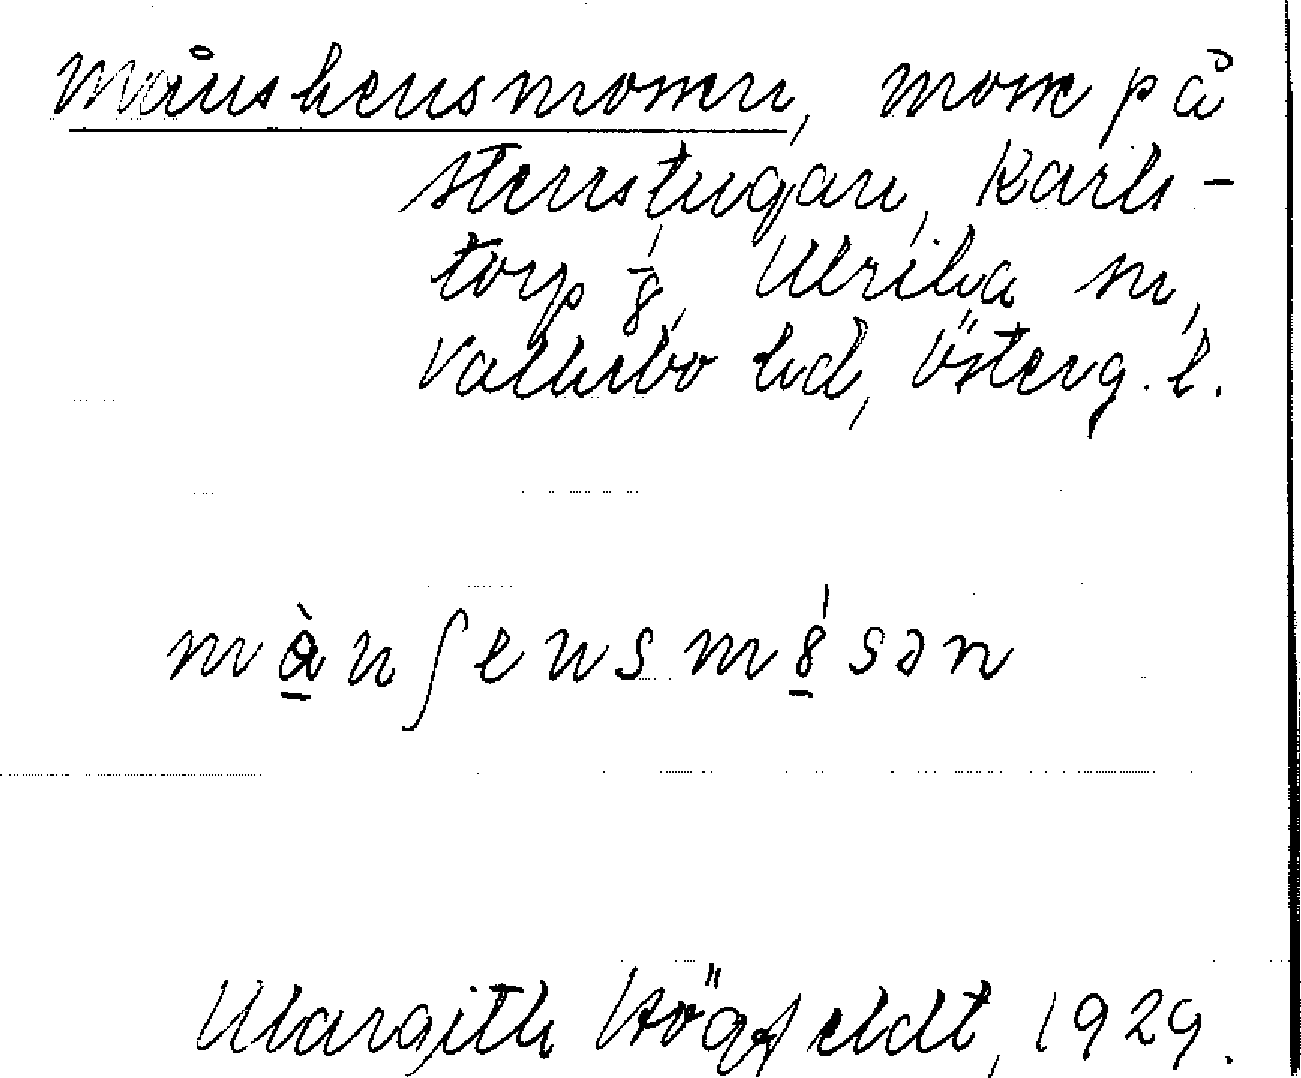 Månskensmossen, mosse på
Stenstugan, Karls-
torp 1/8, Ulrika sn,
Valkebo hd, Österg. l.
mànʃensmósən
Margith Högfeldt, 1929.